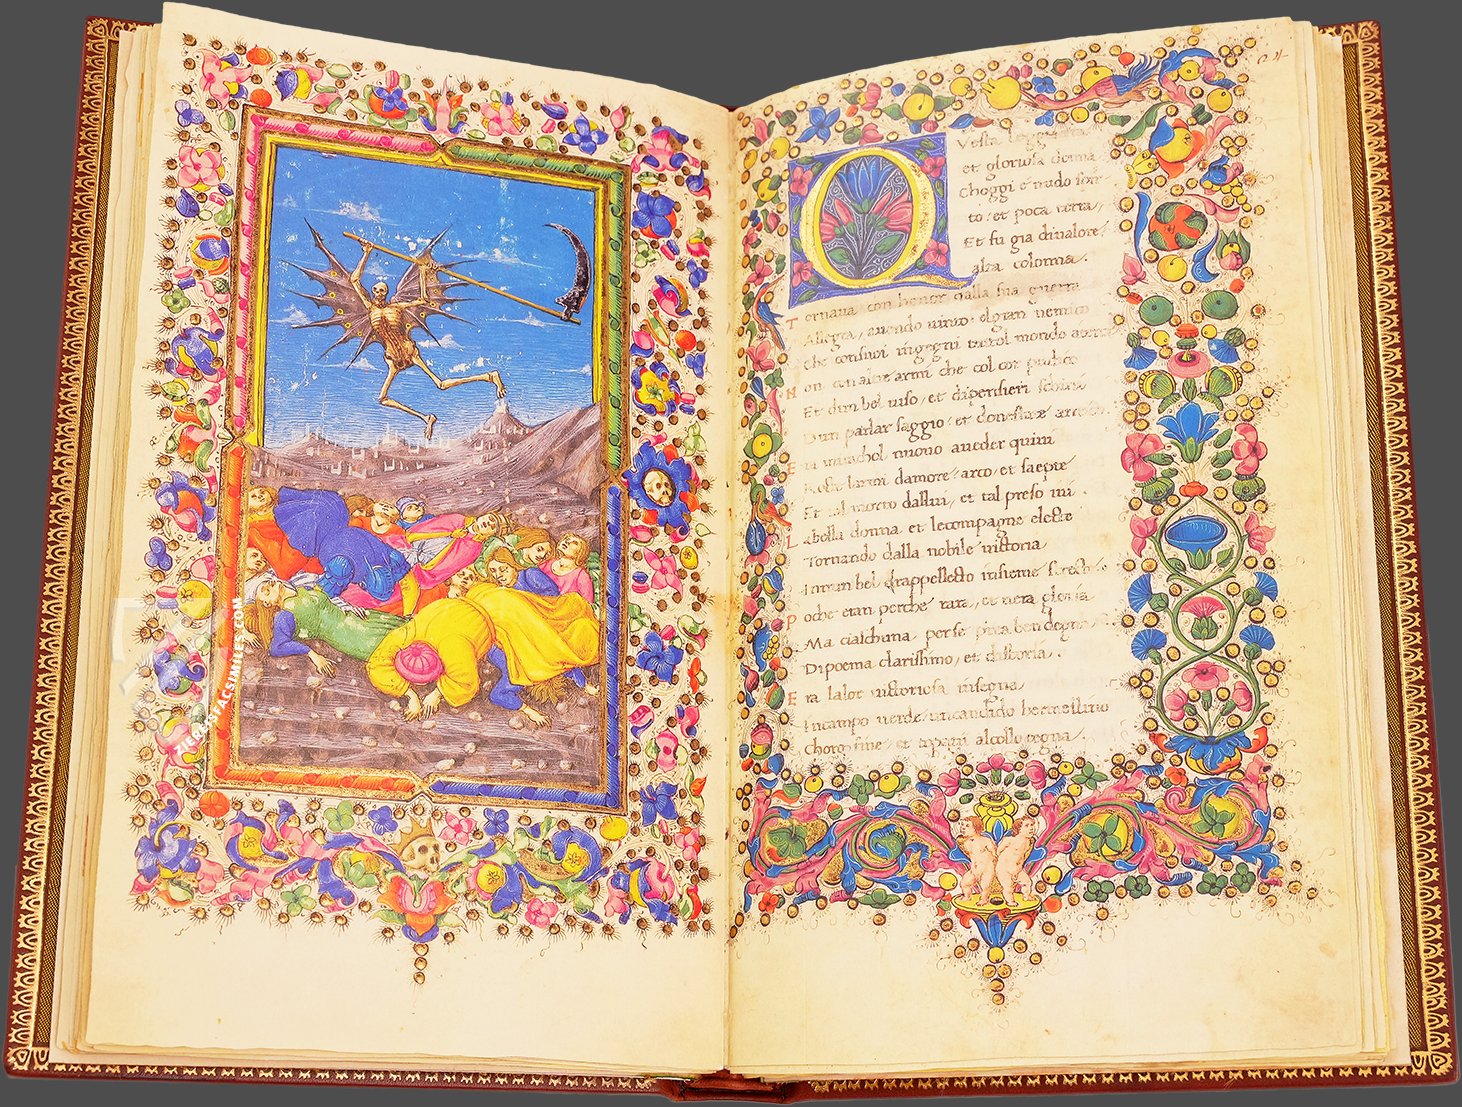 Vesta leggiadra
et gloriosa donna
Choggi e nudo spir
to: et poca terra,
Et fu gia di valore
alta colonna.
Tornaua con honor dalla sua guerra
Allegra, auendo uinto el gran nemico
Che con suoi ingegni tutto l mondo atterra
Non con altre armi che col cor pudico
Et dun bel uiso, et di pensieri schiui
Dun parlar saggio, et donesta amico
Era miracol nuouo aueder quiui
Rotte larmi damore, arco, et saepte
Et tal morto dallui, et tal preso iui.
La bella donna et le compagne elette
Tornando dalla nobile uittoria
In un bel drappelletto insieme
Poche eran perche rara, et uera gloria
Ma ciaschuna per se parea ben degna
Di poema clarissimo, et distoria.
Era la lor uittoriosa insegna
In campo uerde, un candido hermellino
Choro fine, et topazi al collo tegna.
FACSIMILES.COM